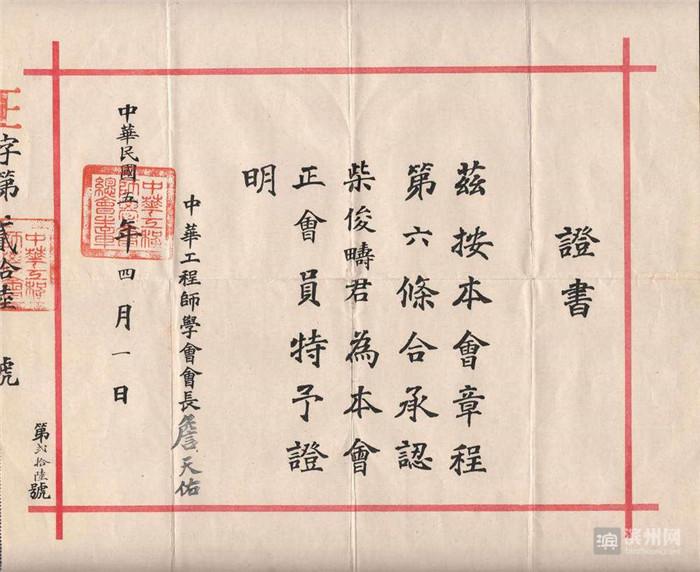 證書
茲按本會章程
第六條合承認
柴俊疇君為本會
正會員特予證
明
中華工程師學會會長詹天佑
中華民國五年四月一日
中華工程師學會總會之章
正字第貳拾陸號
第貳拾陸號
滨州网
binzhouw.com